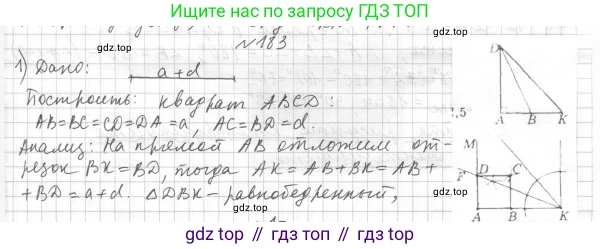 Ищите нас по запросу ГДЗ ТОП
гдз топ
№ 183
1) Дано: a+d
Построить: квадрат ABCD:
AB=BC=CD=DA=a, AC=BD=d.
Анализ: На прямой AB отложим от-
резок BK=BD, тогда AK=AB+BK=AB+
+BD=a+d. △DBK – равнобедренный,
D
A B K
,5°
M
P D C
A B K
гдз топ // гдз топ // гдз топ